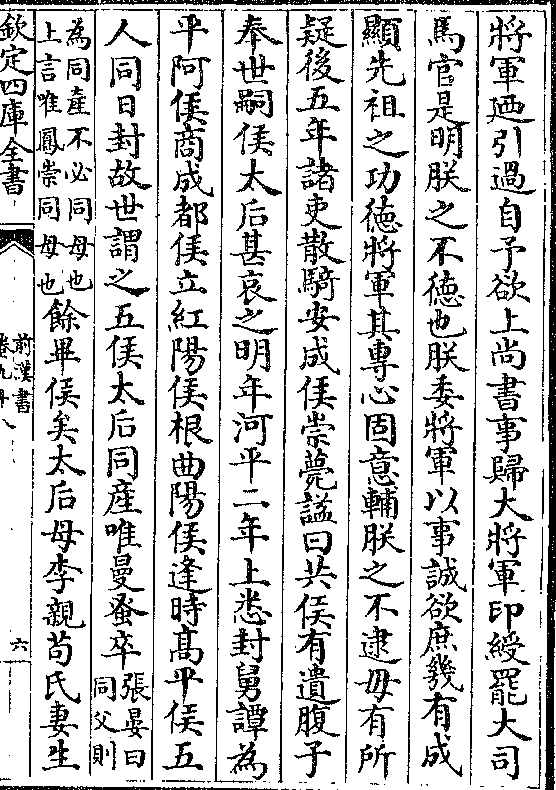 將軍廼引過自予欲上尚書事歸大將軍印綬罷大司
馬官是明朕之不德也朕委將軍以事誠欲庶幾有成
顯先祖之功德將軍其專心固意輔朕之不逮毋有所
疑後五年諸吏散騎安成侯崇薨諡曰共侯有遺腹子
奉世嗣侯太后甚哀之明年河平二年上悉封舅譚為
平阿侯商成都侯立紅陽侯根曲陽侯逢時髙平侯五
人同日封故世謂之五侯太后同産唯曼蚤卒張晏曰同父則
為同産不必同母也上言唯鳳崇同母也餘畢侯矣太后母李親苟氏妻生
欽定四庫全書
前漢書
卷九十八
六